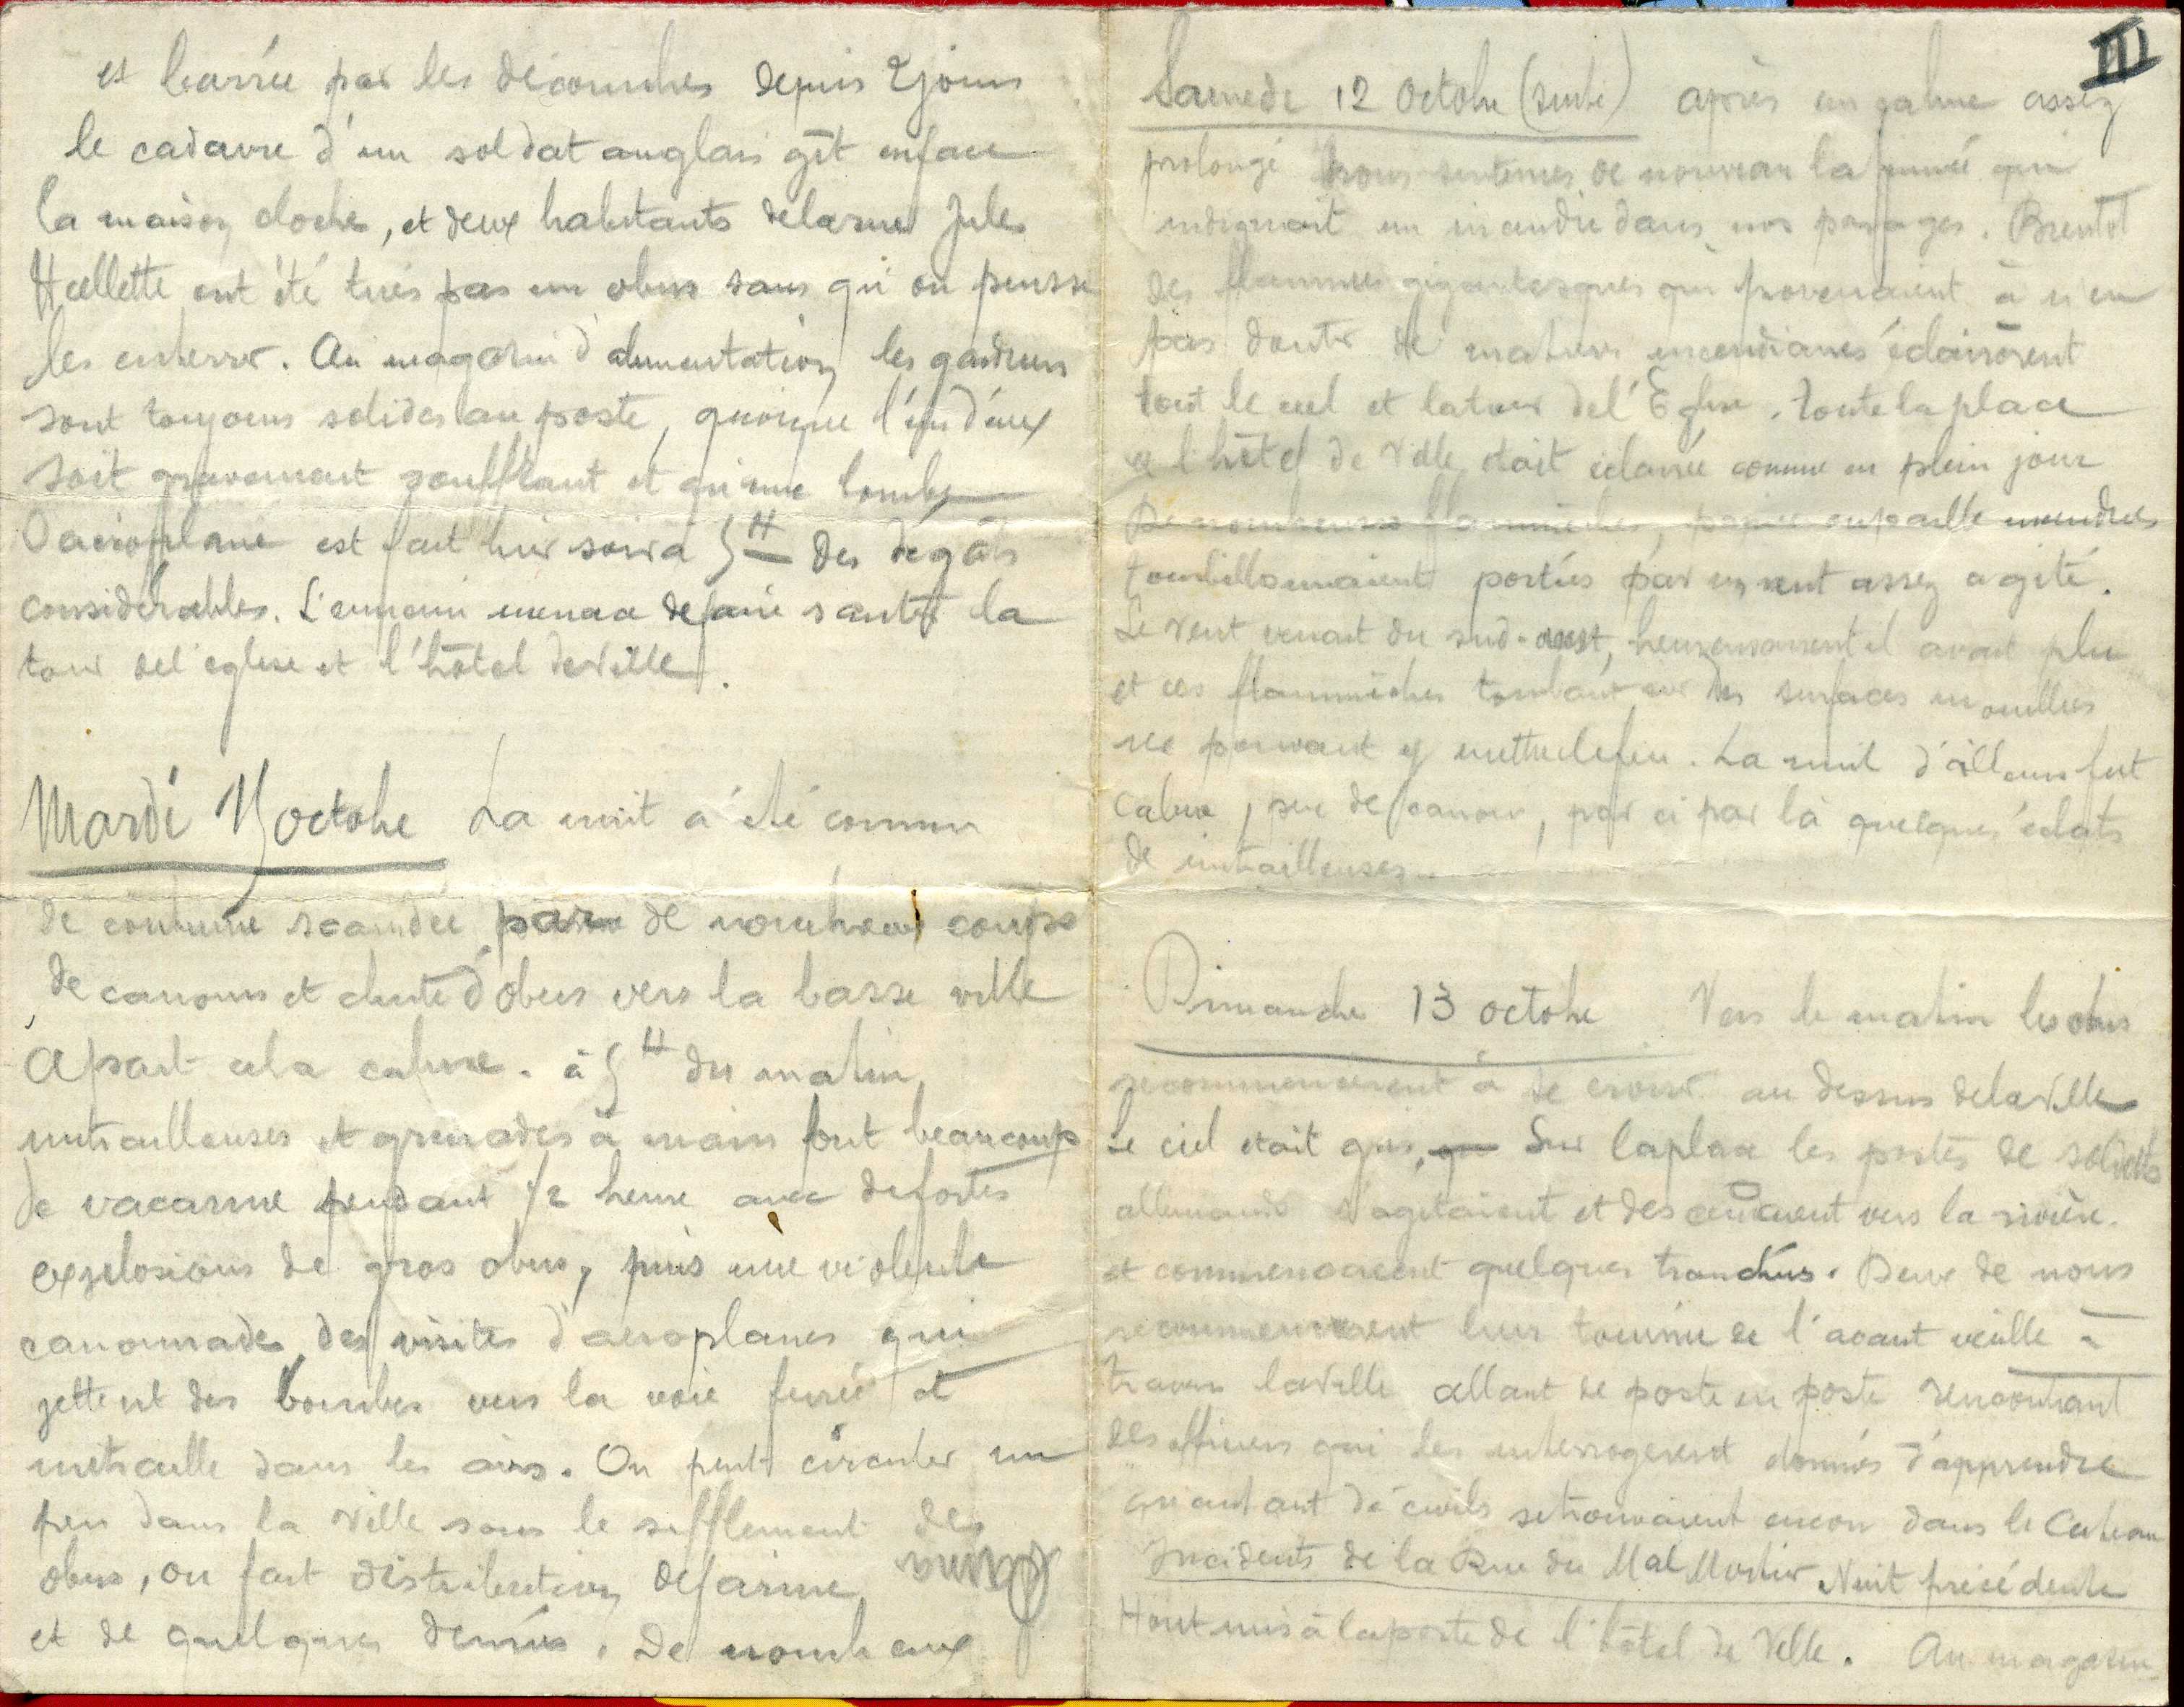 est barrée par les décombres depuis 2 jours
le cadavre d'un soldat anglais gît enface
la maison cloche, et deux habitants delarue Jules
Hallette ont été tués par un obus sans qu'on puisse
les enterrer. Au magasin d'alimentation les gardiens
sont toujours solides au poste, quoique l'un d'eux
soit gravement souffrant et qu'une bombe
d'aéroplane est fait hier soir à 5H des dégâts
considérables. L'ennemi menace defaire sauter la
tour del'eglise et l'hôtel deVille.
Mardi 15 octobre La nuit a été comme
de coutume scandée par de nombreux coups
de canons et chute d'obus vers la basse ville
Apart cela calme. à 5H du matin,
mitrailleuses et grenades à main font beaucoup
de vacarme pendant 1/2 heure avec defortes
explosions de gros obus, puis une violente
canonnade, des visites d'aeroplanes qui
jettent des bombes vers la voie ferrée et
mitraille dans les airs. On peut circuler un
peu dans la ville sous le sifflement des
obus, on fait distribution defarine
et de quelques denrées. De nombreux
III
Samedi 12 Octobre (suite) après un calme assez
prolongé nous sentimes de nouveau la fumée qui
indiquait un incendie dans nos parages. Bientot
des flammes gigantesques qui provenaient à n'en
pas douter de matières incendiaires éclairèrent
tout le ciel et latour del'Eglise. toute la place
et l'hôtel de Ville était éclairée comme en plein jour
De nombreuses flammèches, papier oupaille incendiés
tourbillonnaient portées par un vent assez agité.
Le vent venait du sud-ouest, heureusement il avait plu
et ces flammèches tombant sur des surfaces mouillées
ne pouvaient y mettrelefeu. La nuit d'ailleurs fut
Calme, peu de canon, par ci par là quelques éclats
de mitrailleuses.
Dimanche 13 octobre Vers le matin les obus
recommencèrent à se croiser au dessus delaville
Le ciel était gris, Sur laplace les postes de soldats
allemands s'agitaient et descendaient vers la rivière.
et commencèrent quelques tranchées. Deux de nous
recommencèrent leur tournée de l'avant veille à
travers laville allant de poste en poste rencontrant
des officiers qui les interrogèrent étonnés d'apprendre
qu'autant de civils setrouvaient encore dans le Cateau
Incidents de la Rue du Mal Mortier Nuit précédente
Hont mis à laporte de l'hôtel de Ville. Au magasin